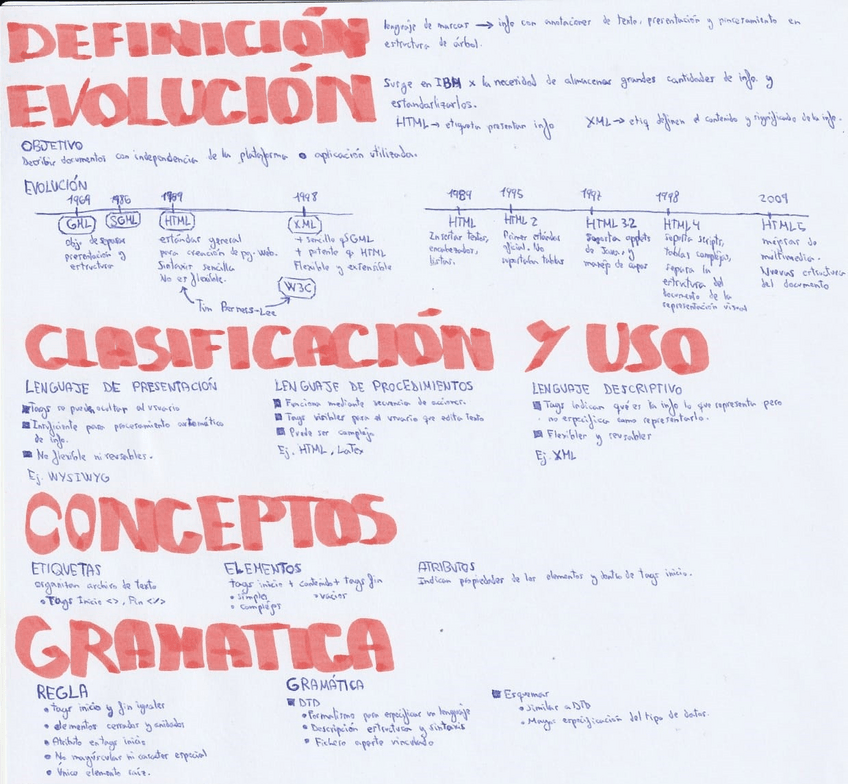 DEFINICIÓN
lenguaje de marcas → info con anotaciones de texto, presentación y procesamiento en
estructura de árbol.
EVOLUCIÓN
Surge en IBM x la necesidad de almacenar grandes cantidades de info. y
estandarlizarlos.
HTML → etiqueta presentar info
XML → etiq definen el contenido y significado de la info.
OBJETIVO
Describir documentos con independencia de la plataforma o aplicación utilizada.
EVOLUCIÓN
1969 1986 1989 1998
GML SGML HTML XML
obj. de separar
presentación y
estructura
estándar general
para creación de pg. web.
Sintaxis sencilla
No es flexible.
+ sencillo q SGML
+ potente q HTML
Flexible y extensible
W3C
Tim Berners-Lee
1989 1995 1997 1998 2009
HTML
Insertar textos,
encabezados,
listas.
HTML 2
Primer estándar
oficial. No
soportaba tablas
HTML 3.2
Soporta applets
de Java, y
manejo de capas
HTML 4
soporta scripts,
tablas complejas,
separa la
estructura del
documento de la
representación visual
HTML 5
mejoras de
multimedia.
Nuevas estructuras
del documento
CLASIFICACIÓN Y USO
LENGUAJE DE PRESENTACIÓN
Tags se pueden ocultar al usuario
Insuficiente para procesamiento automático
de info.
No flexible ni reusables.
Ej. WYSIWYG
LENGUAJE DE PROCEDIMIENTOS
Funciona mediante secuencia de acciones.
Tags visibles para el usuario que edita texto
Puede ser complejo
Ej. HTML, LaTex
LENGUAJE DESCRIPTIVO
Tags indican qué es la info lo que representa pero
no especifica como representarlo.
Flexibles y reusables
Ej. XML
CONCEPTOS
ETIQUETAS
organizan archivo de texto
Tags Inicio <>, Fin </>
ELEMENTOS
tags inicio + contenido + tags fin
simples
vacíos
complejos
ATRIBUTOS
Indican propiedades de los elementos y dentro de tags inicio.
GRAMATICA
REGLA
tags inicio y fin iguales
elementos cerrados y anidados
Atributo en tags inicio
No mayúsculas ni caracter especial
Único elemento raíz.
GRAMÁTICA
DTD
Formalismo para especificar un lenguaje
Descripción estructura y sintaxis
Fichero aparte vinculado
Esquemas
Similar a DTD
Mayor especificación del tipo de datos.